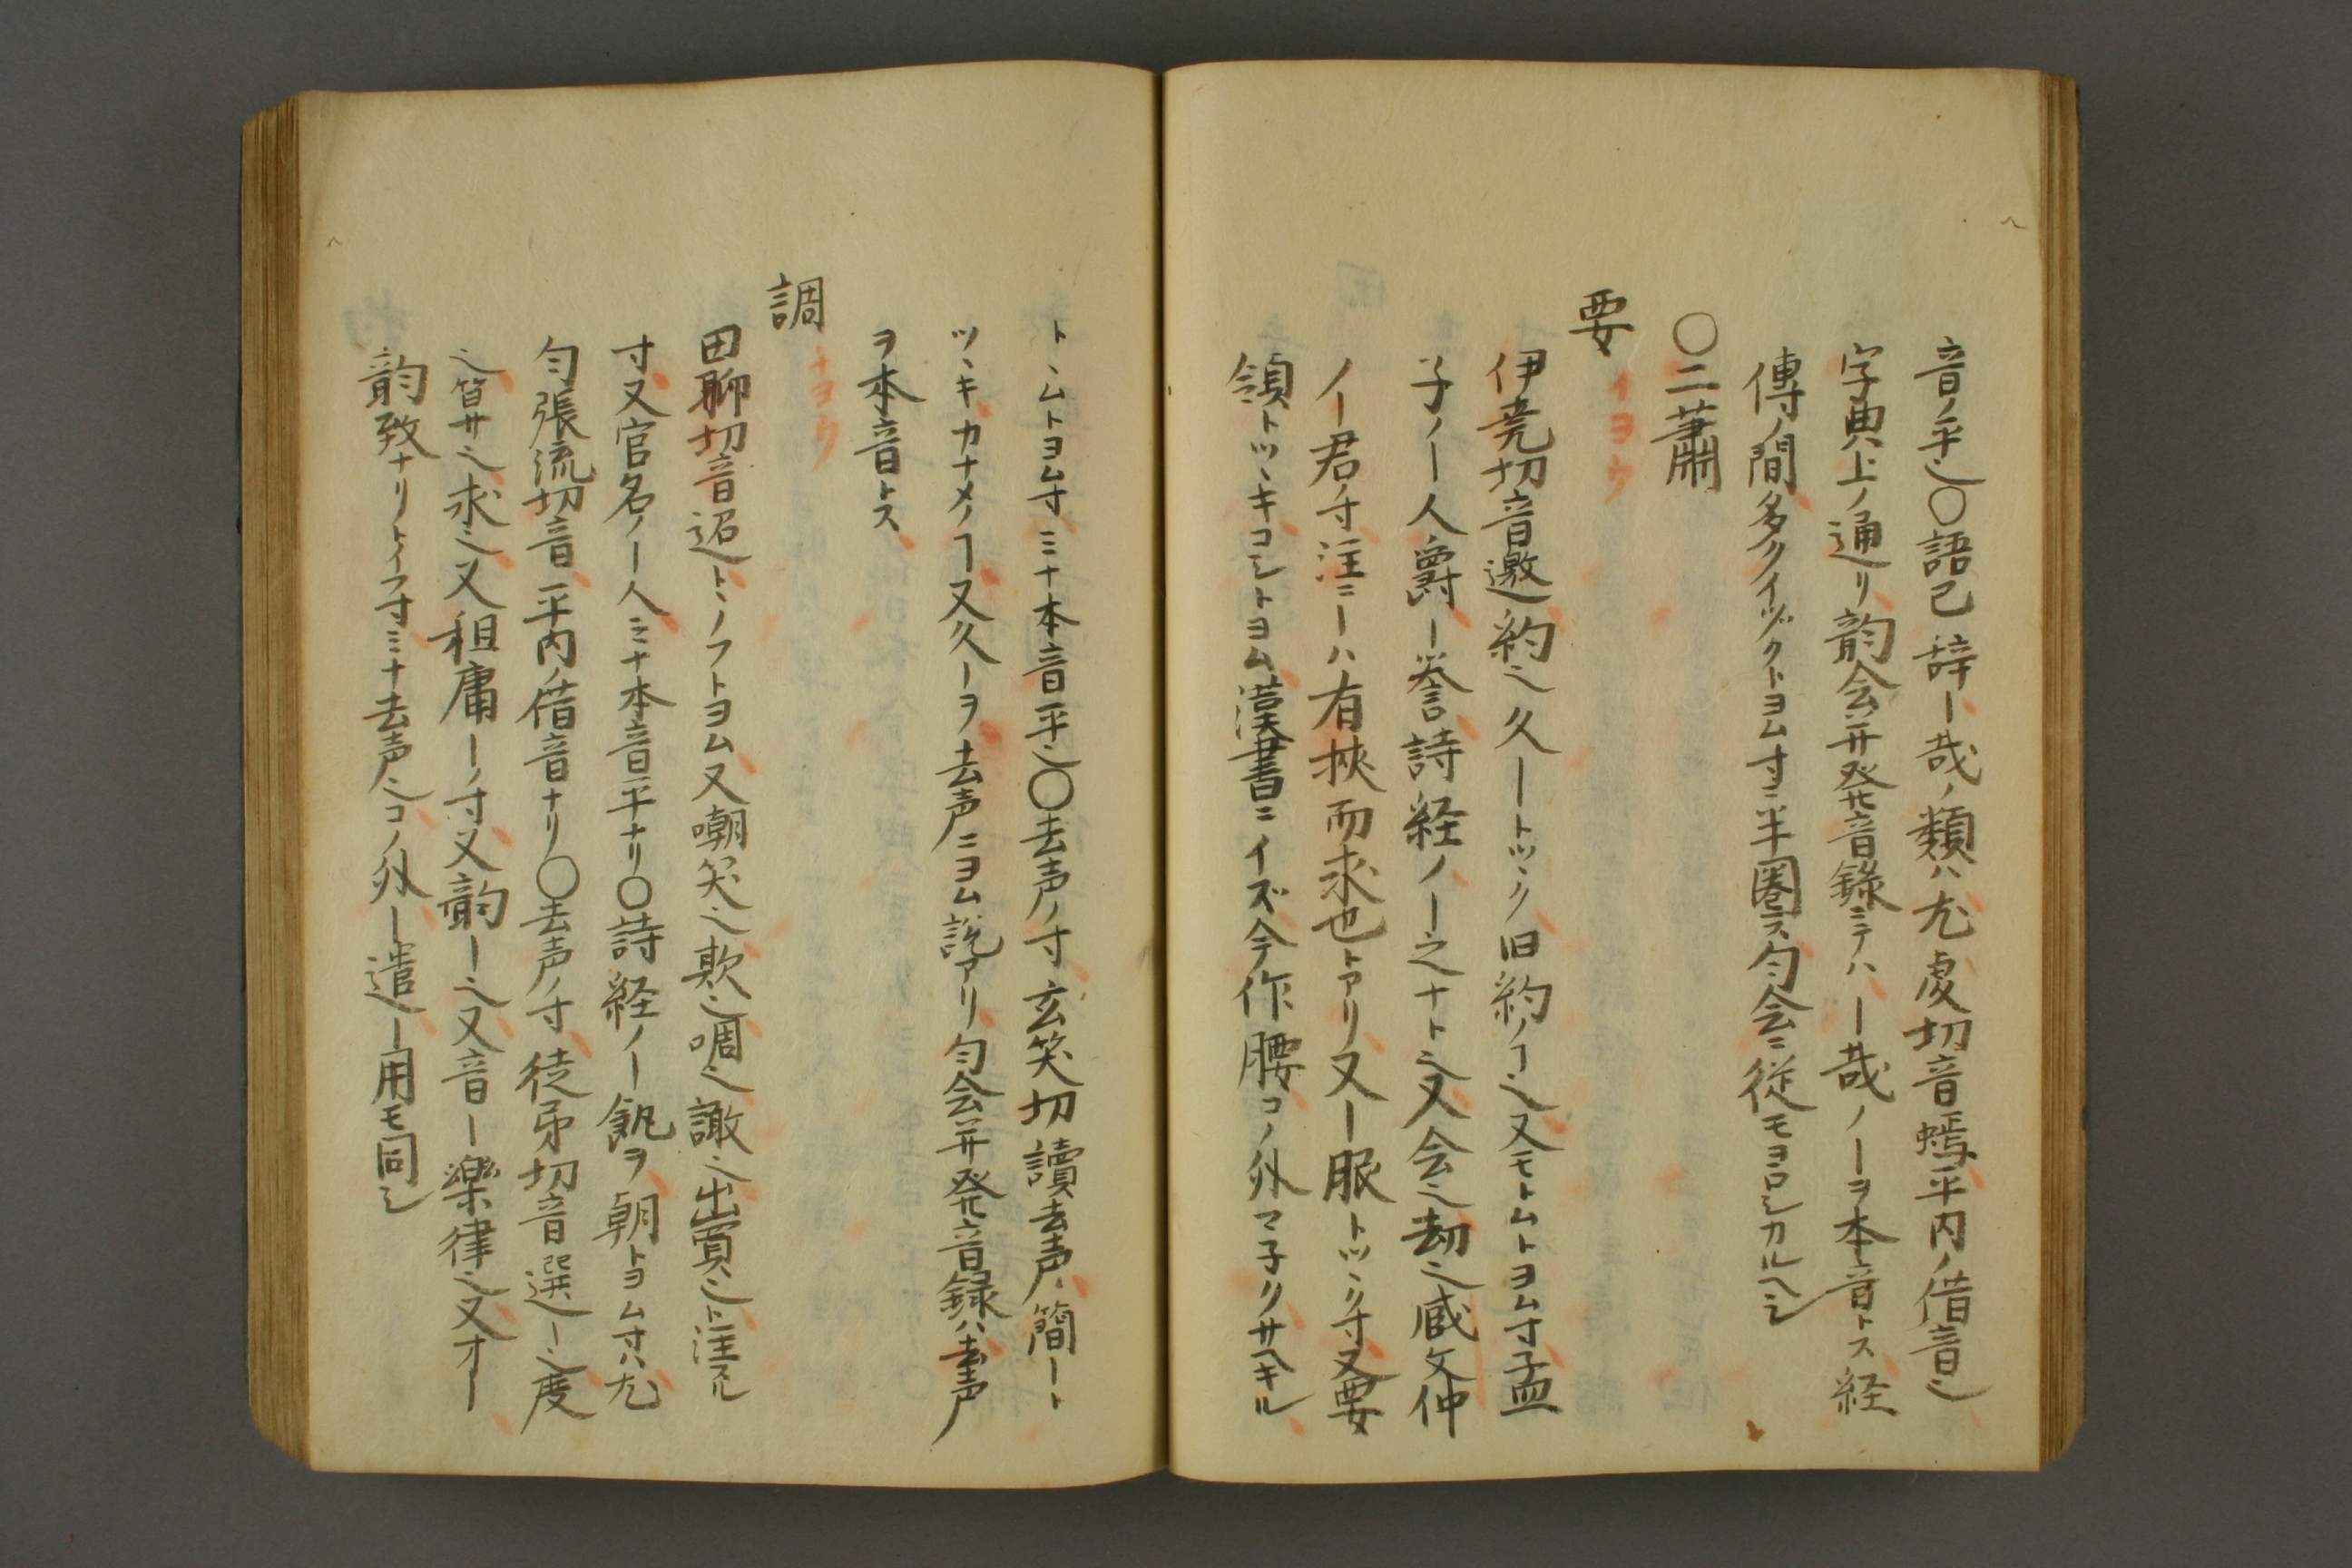 音ノ平也〇語已辞ー哉ノ類ハ尤虔切音嫣平内ノ借音也
字典上ノ通リ韵会并発音錄ミテハー哉ノーヲ本音トス経
傳ノ間多クイヅクトヨム寸ニ半圏ス匀会ニ従モヨロシカルヘシ
〇二蕭
要
イヨウ
伊尭切音邀約也久ートツヽク旧約ノヿ也又モトムトヨム寸孟
子ノー人爵ー誉詩経ノー之ナト也又会也劫也臧文仲
ノー君ノ寸注ニーハ有挾而求也トアリ又ー服トツヽク寸又要
領トツヽキコシトヨム漢書ニイズ今作腰コノ外マ子クサヘキル
トヽムトヨム寸ミナ本音平也〇去声ノ寸玄笑切讀去声簡ート
ツヽキカナメノヿ又久ーヲ去声ニヨム説アリ匀会并発音録ハ去声
ヲ本音トス
調
チヨウ
田聊切音迢トヽノフトヨム又嘲笑也欺也啁也譀也出賣也ト注スル
寸又官名ノー人ミナ本音平ナリ〇詩経ノー飢ヲ朝トヨム寸ハ尤
匀張流切音平内ノ借音ナリ〇去声ノ寸徒弔切音選ー也度
也筲サ也求也又租庸ーノ寸又韵ー也又音ー樂律也又才ー
韵致ナリトイフ寸ミナ去声也コノ外ー遣ー用モ同シ